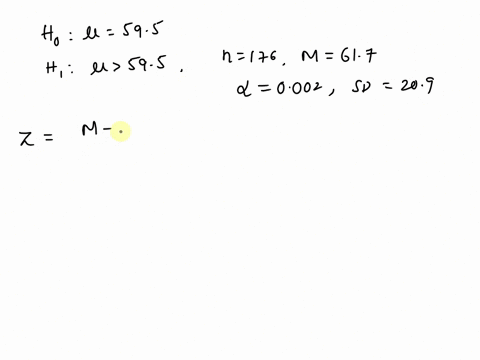 H₀: μ = 59.5
H₁: μ > 59.5, n = 176, M = 61.7
α = 0.002, SD = 20.9
Z = M -